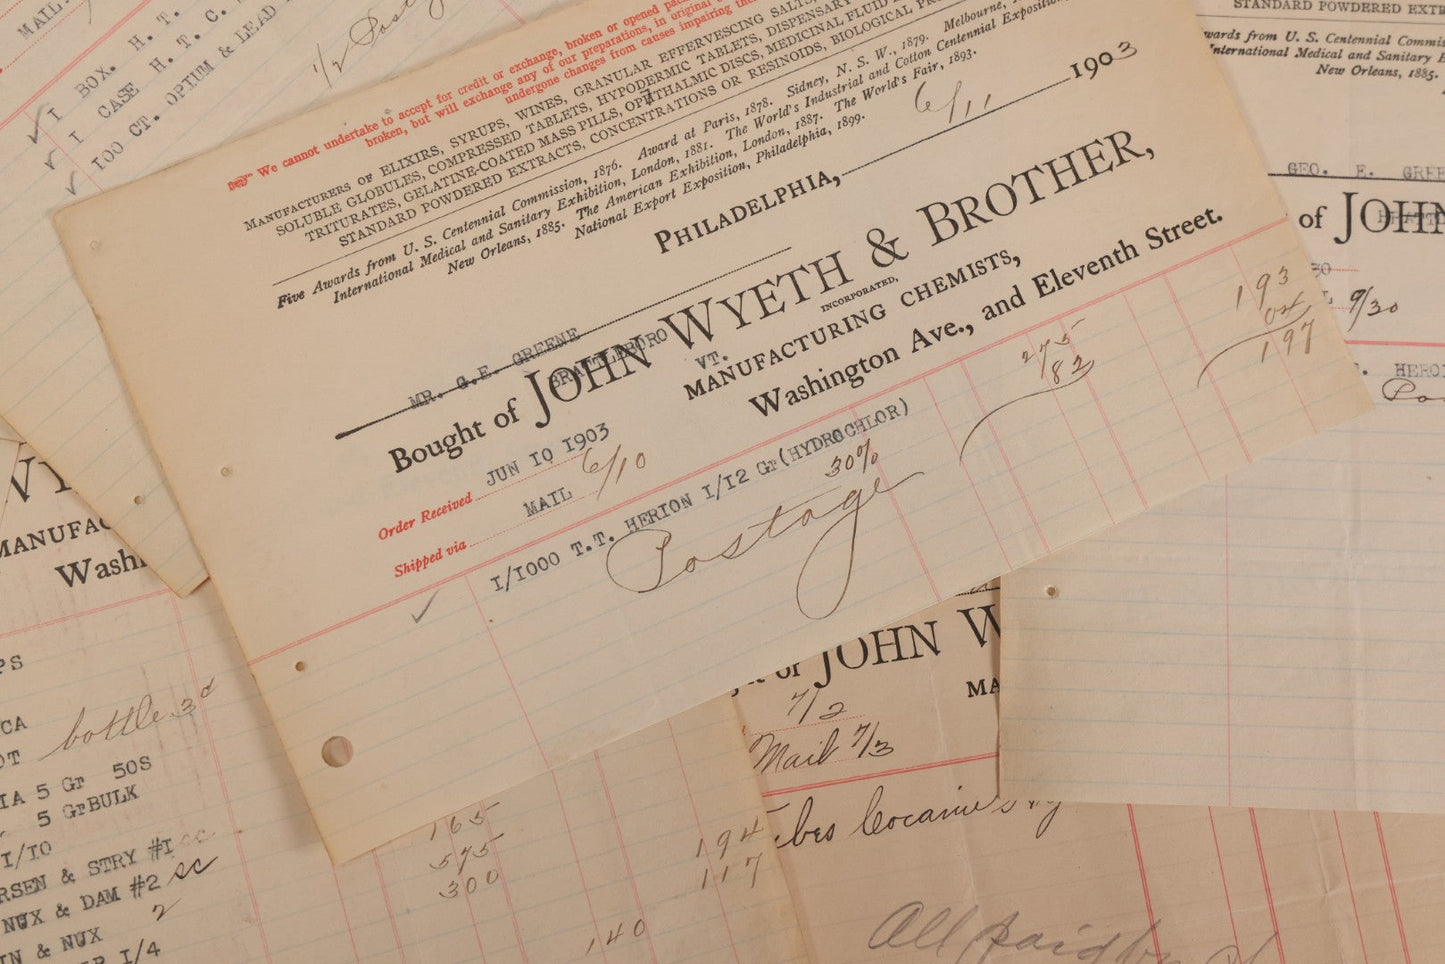 MAIL.
1 BOX. H. T.
1 CASE H. T. C.
100 CT. OPIUM & LEAD
1/2 Postage
We cannot undertake to accept for credit or exchange, broken or opened
broken, but will exchange any of our preparations, in original
undergone changes from causes impairing
MANUFACTURERS OF ELIXIRS, SYRUPS, WINES, GRANULAR EFFERVESCING SALTS,
SOLUBLE GLOBULES, COMPRESSED TABLETS, HYPODERMIC TABLETS, DISPENSARY
TRITURATES, GELATINE-COATED MASS PILLS, OPHTHALMIC DISCS, MEDICINAL FLUID
STANDARD POWDERED EXTRACTS, CONCENTRATIONS OR RESINOIDS, BIOLOGICAL
Five Awards from U. S. Centennial Commission, 1876. Award at Paris, 1878. Sidney, N. S. W., 1879. Melbourne,
International Medical and Sanitary Exhibition, London, 1881. The World's Industrial and Cotton Centennial
New Orleans, 1885. The American Exhibition, London, 1887. The World's Fair, 1893.
National Export Exposition, Philadelphia, 1899.
PHILADELPHIA, 6/11 1903
MR. G.E. GREENE
BRATTLEBORO VT.
Bought of JOHN WYETH & BROTHER,
INCORPORATED,
MANUFACTURING CHEMISTS,
Washington Ave., and Eleventh Street.
Order Received JUN 10 1903
Shipped via MAIL 6/10
1/1000 T.T. HERION 1/12 Gr(HYDROCHLOR) 275
30% 82 193
Postage 04
197
STANDARD POWDERED
from U. S. Centennial
International Medical and Sanitary
New Orleans, 1885.
GEO. E.
of
9/30
MANUFAC
JOHN
MA
7/2
Mail 7/3
Cocaine
All paid by
bottle 3d
5 Gr 50S
5 GrBULK
1/10
& STRY #1 cc
NUX & DAM #2 sc
& NUX 2
1/4
165
575
300
194
117
140